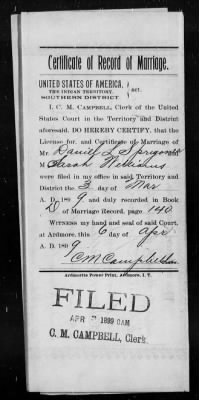 Certificate of Record of Marriage.
UNITED STATES OF AMERICA,
THE INDIAN TERRITORY, } sct.
SOUTHERN DISTRICT
I, C. M. CAMPBELL, Clerk of the United
States Court in the Territory and District
aforesaid, DO HEREBY CERTIFY, that the
License for, and Certificate of Marriage of
Mr. Daniel L
M Sarah Williams
were filed in my office in said Territory and
District the 3 day of Mar
A. D. 1899 and duly recorded in Book
D of Marriage Record, page 140
WITNESS my hand and seal of said Court,
at Ardmore, this 6 day of Apr
A. D. 1899.
C M Campbell
Ardmorite Power Print, Ardmore, I. T.
FILED
APR 1899 8AM
C. M. CAMPBELL, Clerk.